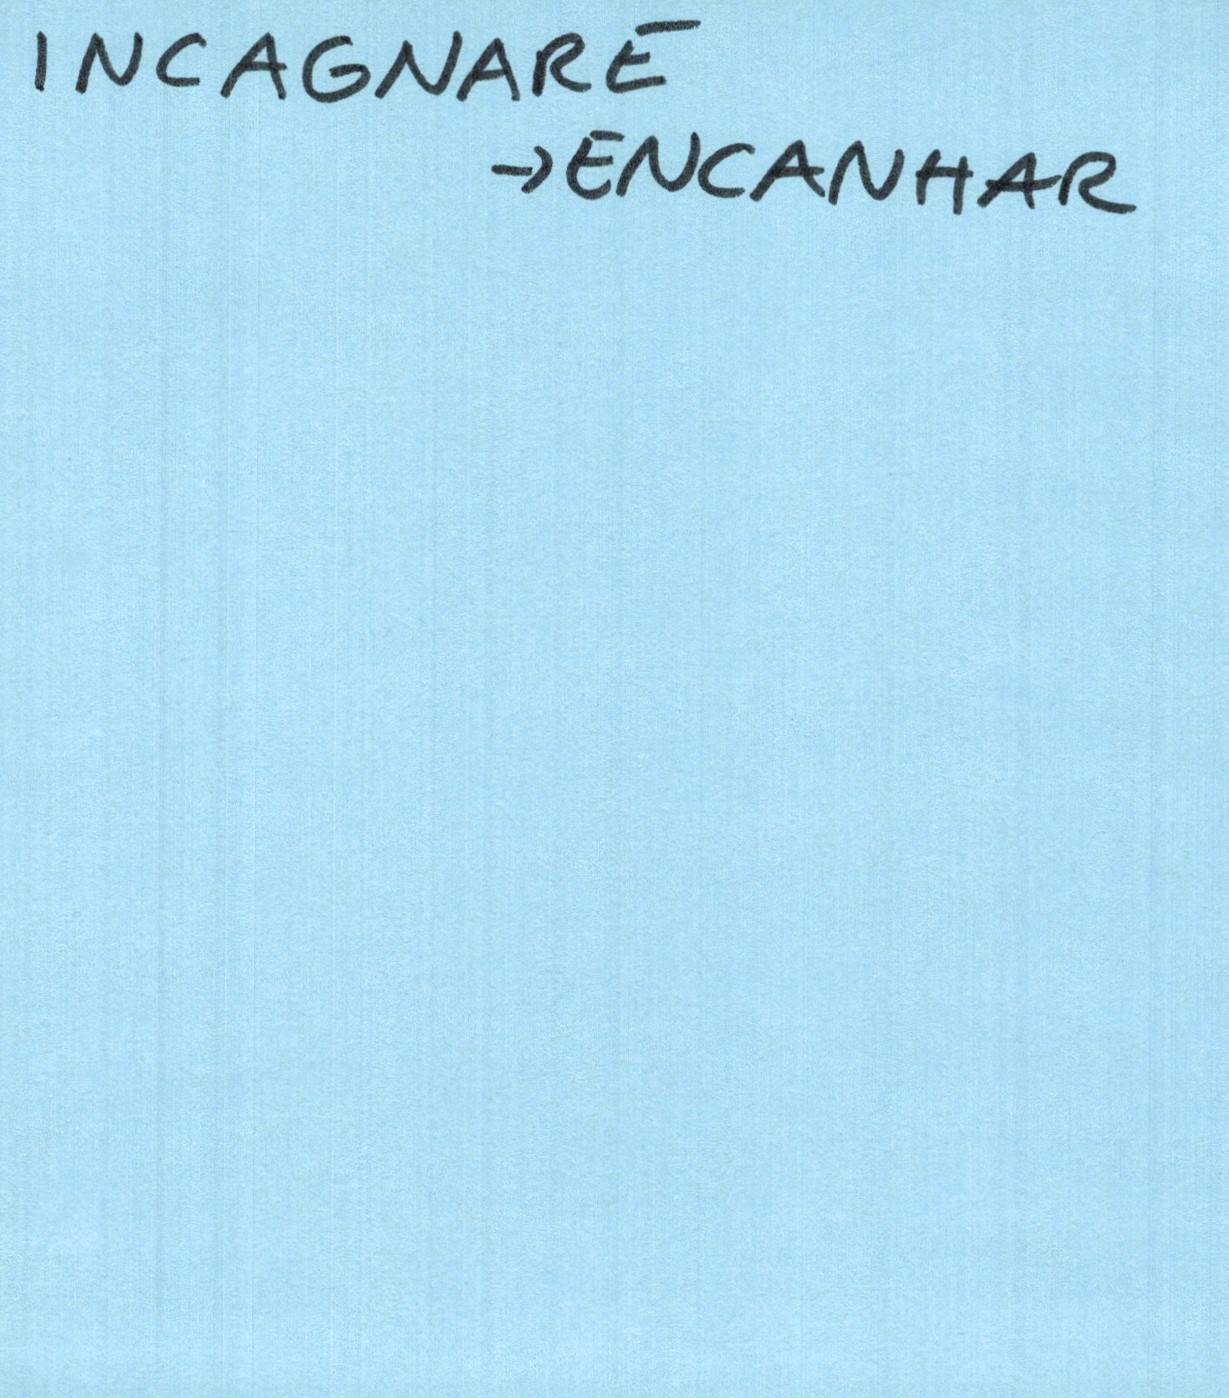 INCAGNARE
→ENCANHAR